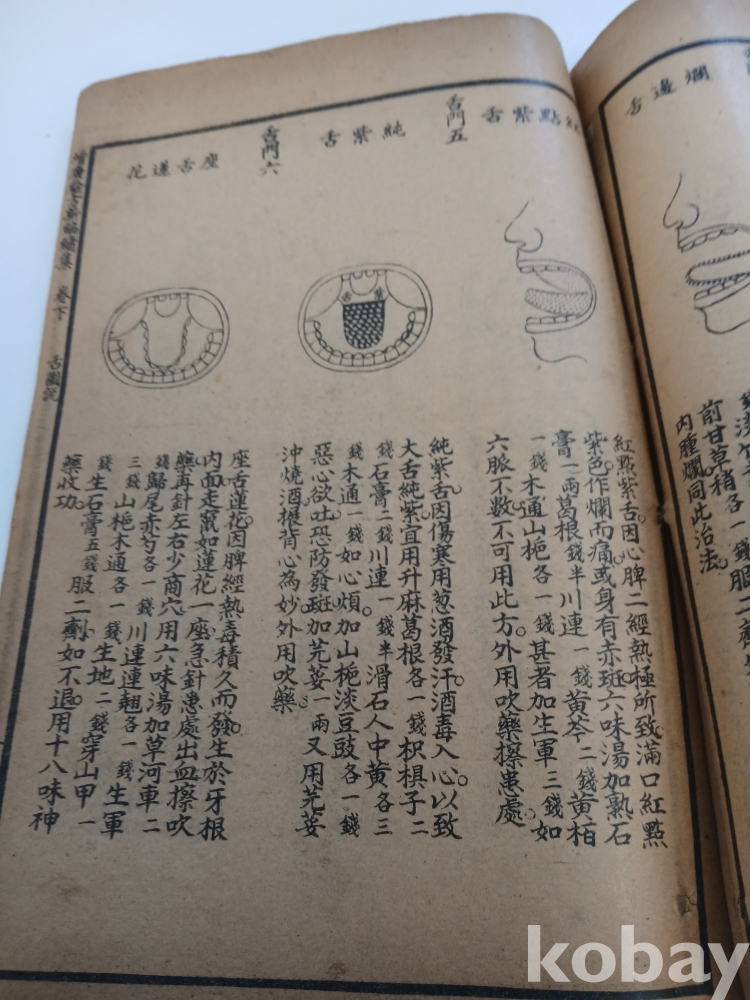 爛邊舌
前甘草稍各一錢
內腫爛同此治法
點紫舌
舌門五
純紫舌
舌門六
座舌蓮花
紫舌
紅點紫舌因心脾二經熱極所致滿口紅點
紫色作爛而痛或身有赤斑六味湯加熟石
膏一兩葛根錢半川連一錢黃芩二錢黃栢
一錢木通山梔各一錢甚者加生軍三錢如
六脈不數不可用此方外用吹藥擦患處
純紫舌因傷寒用葱酒發汗酒毒入心以致
大舌純紫宜用升麻葛根各一錢枳椇子二
錢石膏二錢川連一錢半滑石人中黃各三
錢木通一錢如心煩加山梔淡豆豉各一錢
惡心欲吐恐防發斑加芫荽一兩又用芫荽
沖燒酒搌背心為妙外用吹藥
座舌蓮花因脾經熱毒積久而發生於牙根
內面走氣如蓮花一座急針患處出血擦吹
藥再針左右少商穴用六味湯加草河車二
錢歸尾赤芍各一錢川連連翹各一錢生軍
三錢山梔木通各一錢生地二錢穿山甲一
錢生石膏五錢服二劑如不退用十八味神
藥收功
卷下
舌圖說
kobay